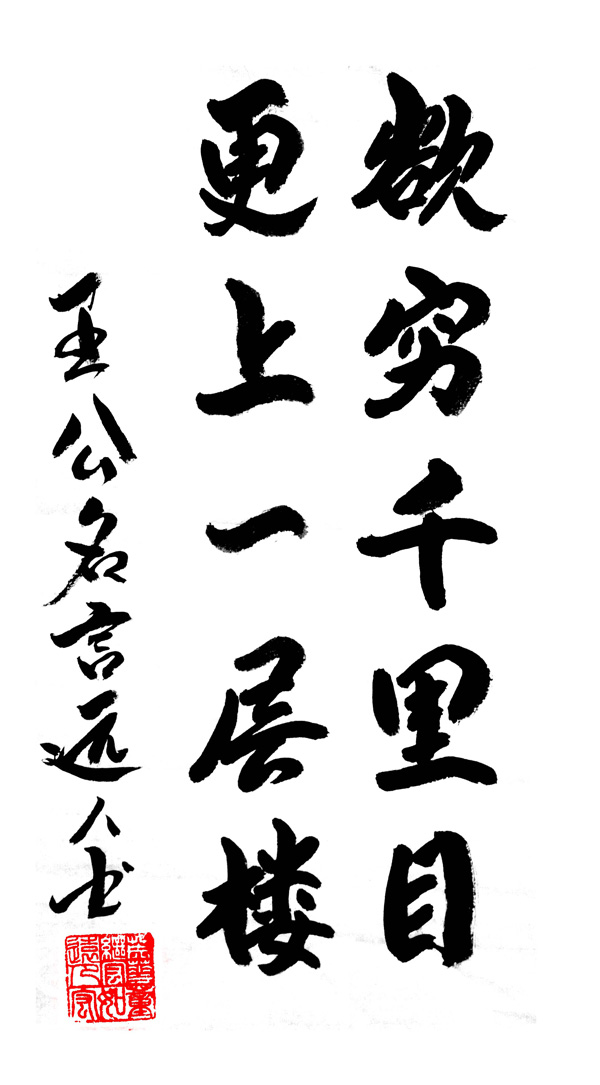 欲穷千里目
更上一层楼
王公名言远人书